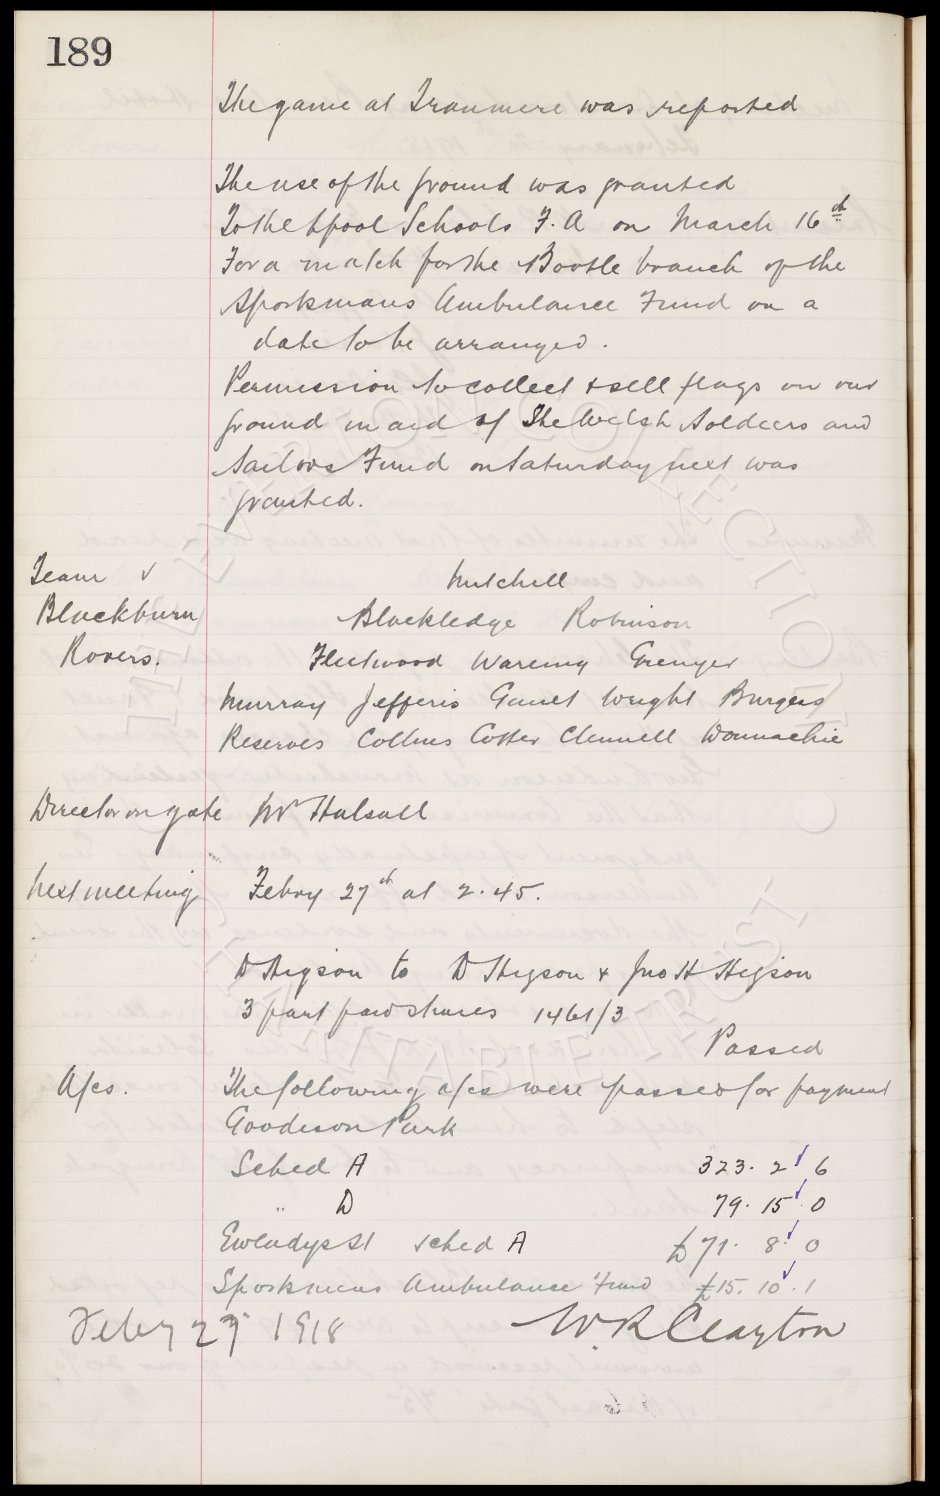 189
The game at Tranmere was reported
The use of the ground was granted
To the Lpool Schools F.A on March 16th
For a match for the Bootle branch of the
Sportsmans Ambulance Fund on a
date to be arranged.
Permission to collect & sell flags on our
ground in aid of The Welsh Soldiers and
Sailors Fund on Saturday next was
granted.
Team v
Blackburn
Rovers.
Mitchell
Blackledge Robinson
Fleetwood Wareing Grenyer
Murray Jefferis Gault Wright Burgess
Reserves Collins Cotter Clennell Donnachie
Director on gate Mr Halsall
Next meeting Febry 27th at 2.45.
D Higson to D Higson & Jno H Higson
3 part paid shares 1461/3
Passed
A/cs. The following a/cs were passed for payment
Goodison Park
Sched A 323. 2. 6
" D 79. 15. 0
Gwladys St Sched A £71. 8. 0
Sportsmens Ambulance Fund £15. 10. 1
Feby 27 1918 W.R Clayton
THE EVERTON COLLECTION
CHARITABLE TRUST